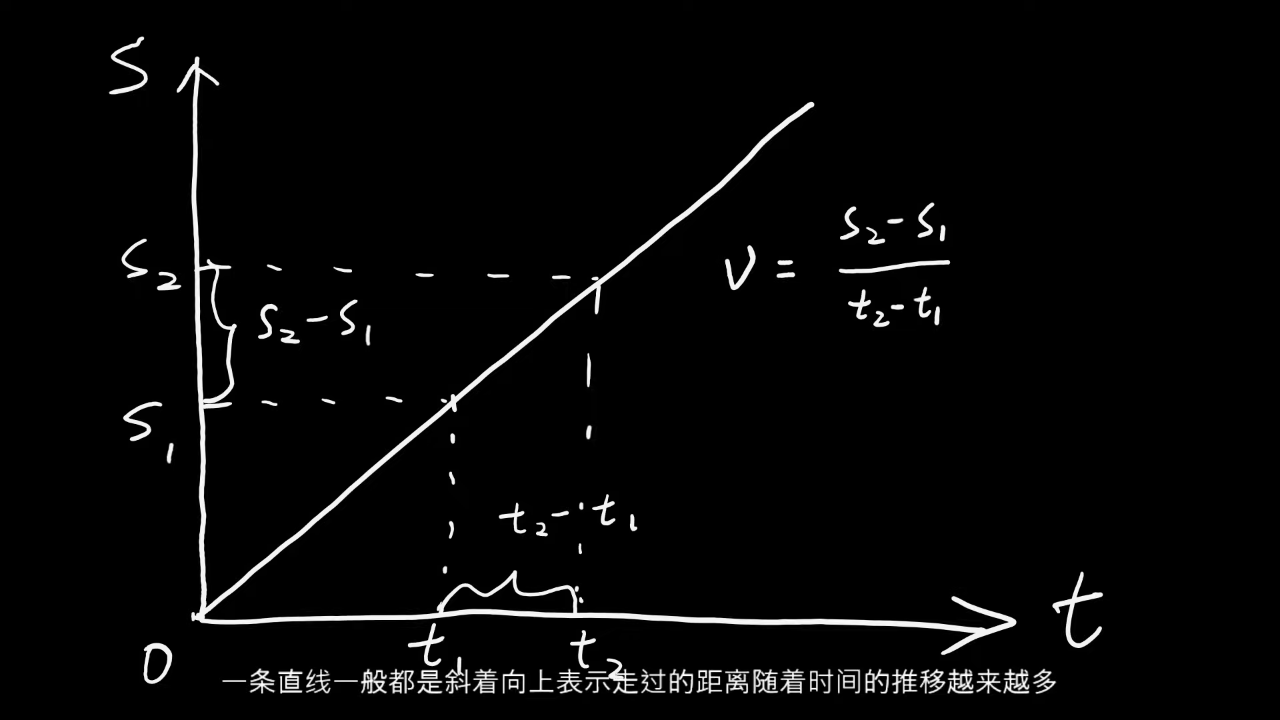 S
S₂
S₂-S₁
V = (S₂-S₁)/(t₂-t₁)
S₁
t₂-t₁
0
t₁
t₂
t
一条直线一般都是斜着向上表示走过的距离随着时间的推移越来越多